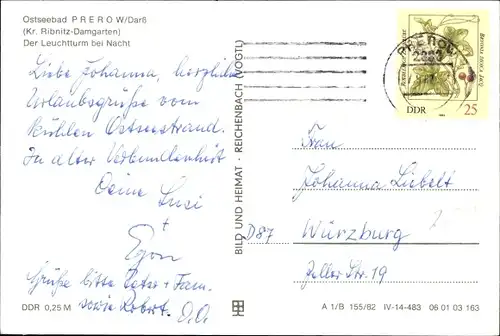 Ostseebad PREROW/Darß
(Kr. Ribnitz-Damgarten)
Der Leuchtturm bei Nacht
Liebe Johanna, herzliche
Urlaubsgrüße vom
kühlen Ostseestrand.
In alter Verbundenheit
Deine Susi
+
Egon
Grüße bitte Peter + Fam.
sowie Robert. D.O.
DDR 0,25 M
BILD UND HEIMAT · REICHENBACH (VOGTL)
PREROW
DDR
25
Frau
Johanna Liebelt
D87 Würzburg
Zeller Str. 19
A 1/B 155/82 IV-14-483 06 01 03 163